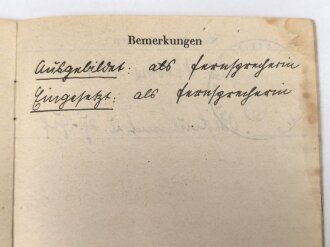 Bemerkungen
Ausgebildet: als Fernsprecherin
Eingesetzt: als Fernsprecherin